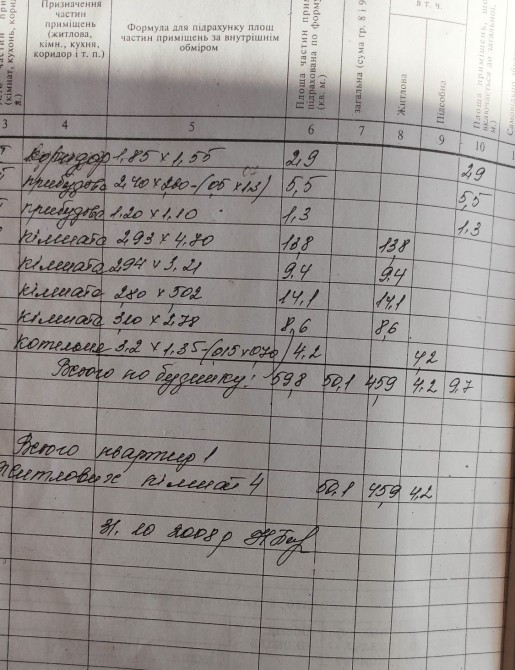 Призначення частин приміщень (житлова, кімн., кухня, коридор і т. п.)
Формула для підрахунку площ частин приміщень за внутрішнім обміром
Площа частин підрахована по (кв. м.)
загальна (сума гр. 8 і 9
в т. ч.
Житлова
Підсобна
3 4 5 6 7 8 9 10
коридор 1,85 x 1,55 2,9 2,9
прибудова 2,40 x 2,80-(05 x 13) 5,5 5,5
прибудова 1,20 x 1,10 1,3 1,3
кімната 2,93 x 4,70 13,8 13,8
кімната 2,94 x 3,21 9,4 9,4
кімната 2,80 x 5,02 14,1 14,1
кімната 3,10 x 2,78 8,6 8,6
3,2 x 1,35-(0,15 x 0,70) 4,2 4,2
Всього по будинку: 59,8 50,1 45,9 4,2 9,7
Всього квартир 1
житлових кімнат 4 50,1 45,9 4,2
31. 10 2008р